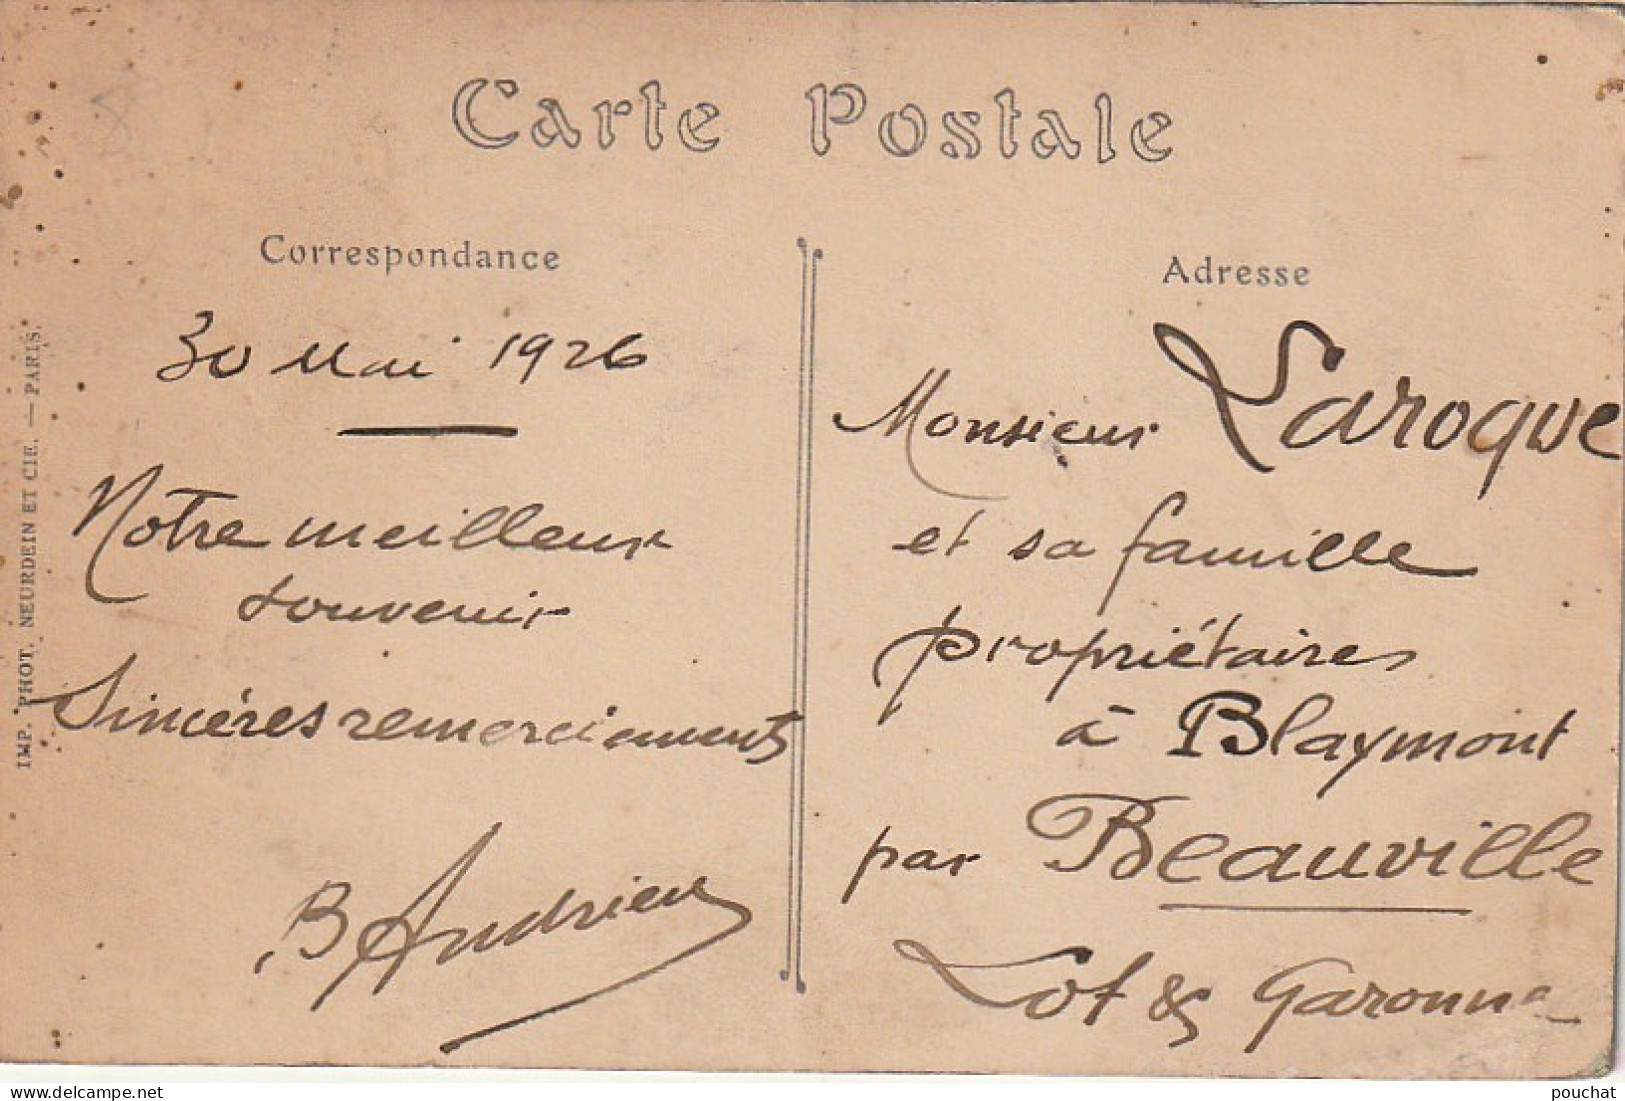 Carte Postale
Correspondance
30 Mai 1926
Notre meilleur
souvenir
Sincères remerciements
B Andrieu
Adresse
Monsieur Laroque
et sa famille
propriétaires
à Blaymont
par Beauville
Lot & Garonne
IMP. PHOT. NEURDEIN ET CIE. — PARIS.
https://www.delcampe.net
pouchat